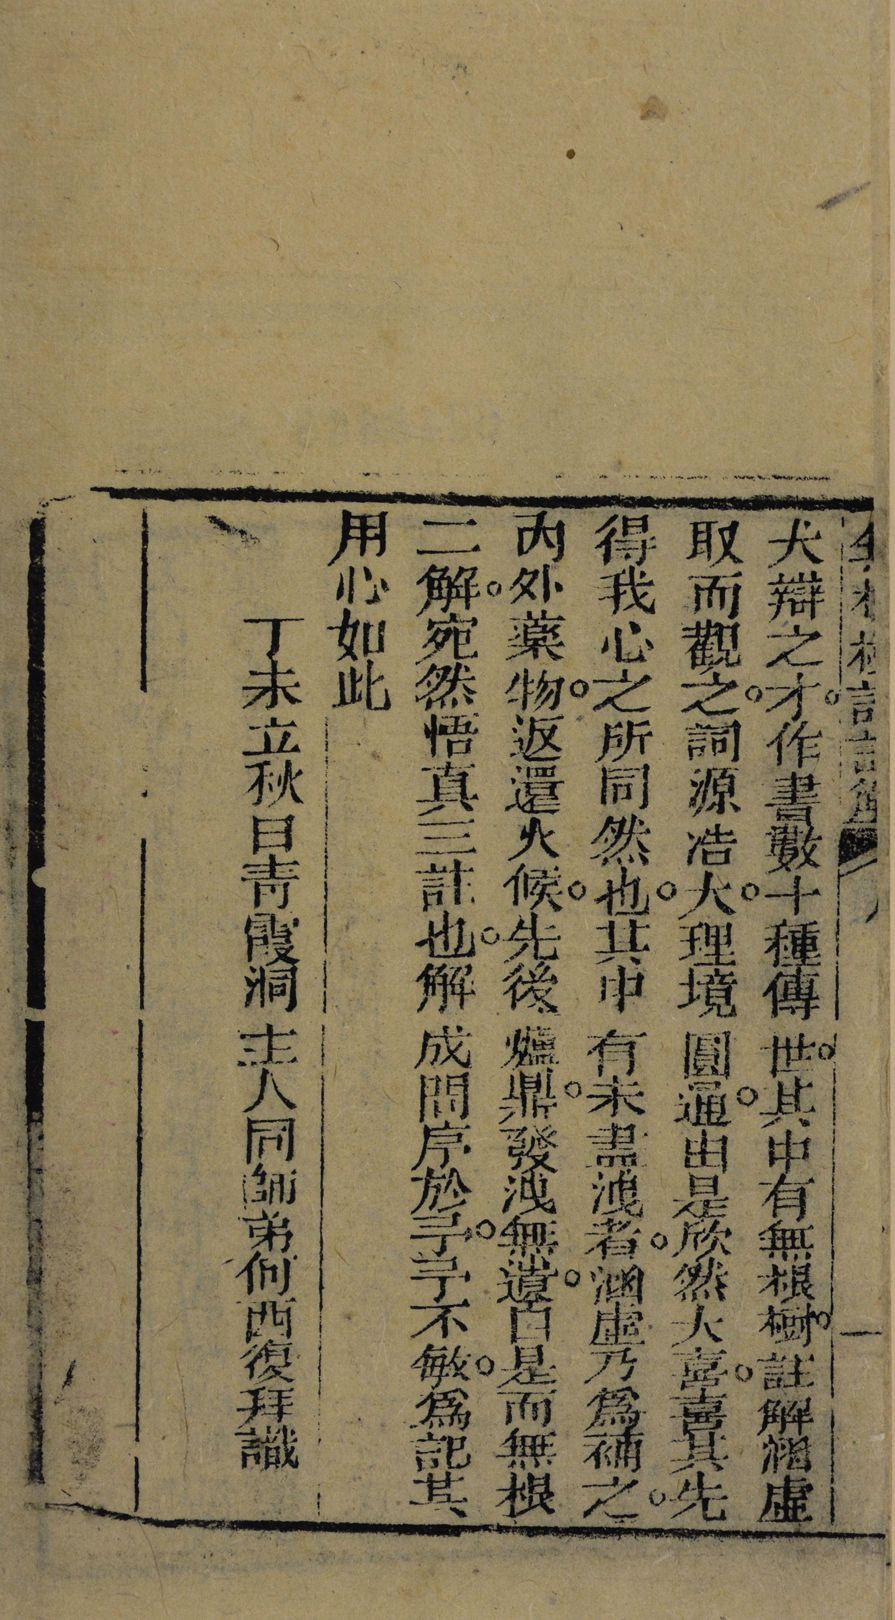 大辯之才。作書數十種傳世。其中有無根樹。註解涵虛
取而觀之。詞源浩大。理境圓通。由是欣然大喜。喜其先
得我心之所同然也。其中有未盡洩者。涵虛乃為補之。
內外藥物。返還火候。先後爐鼎。發洩無遺。自是而無根
二解。宛然悟真三註也。解成問序於予。予不敏。為記其
用心如此
丁未立秋日青霞洞主人同師弟何西復拜識